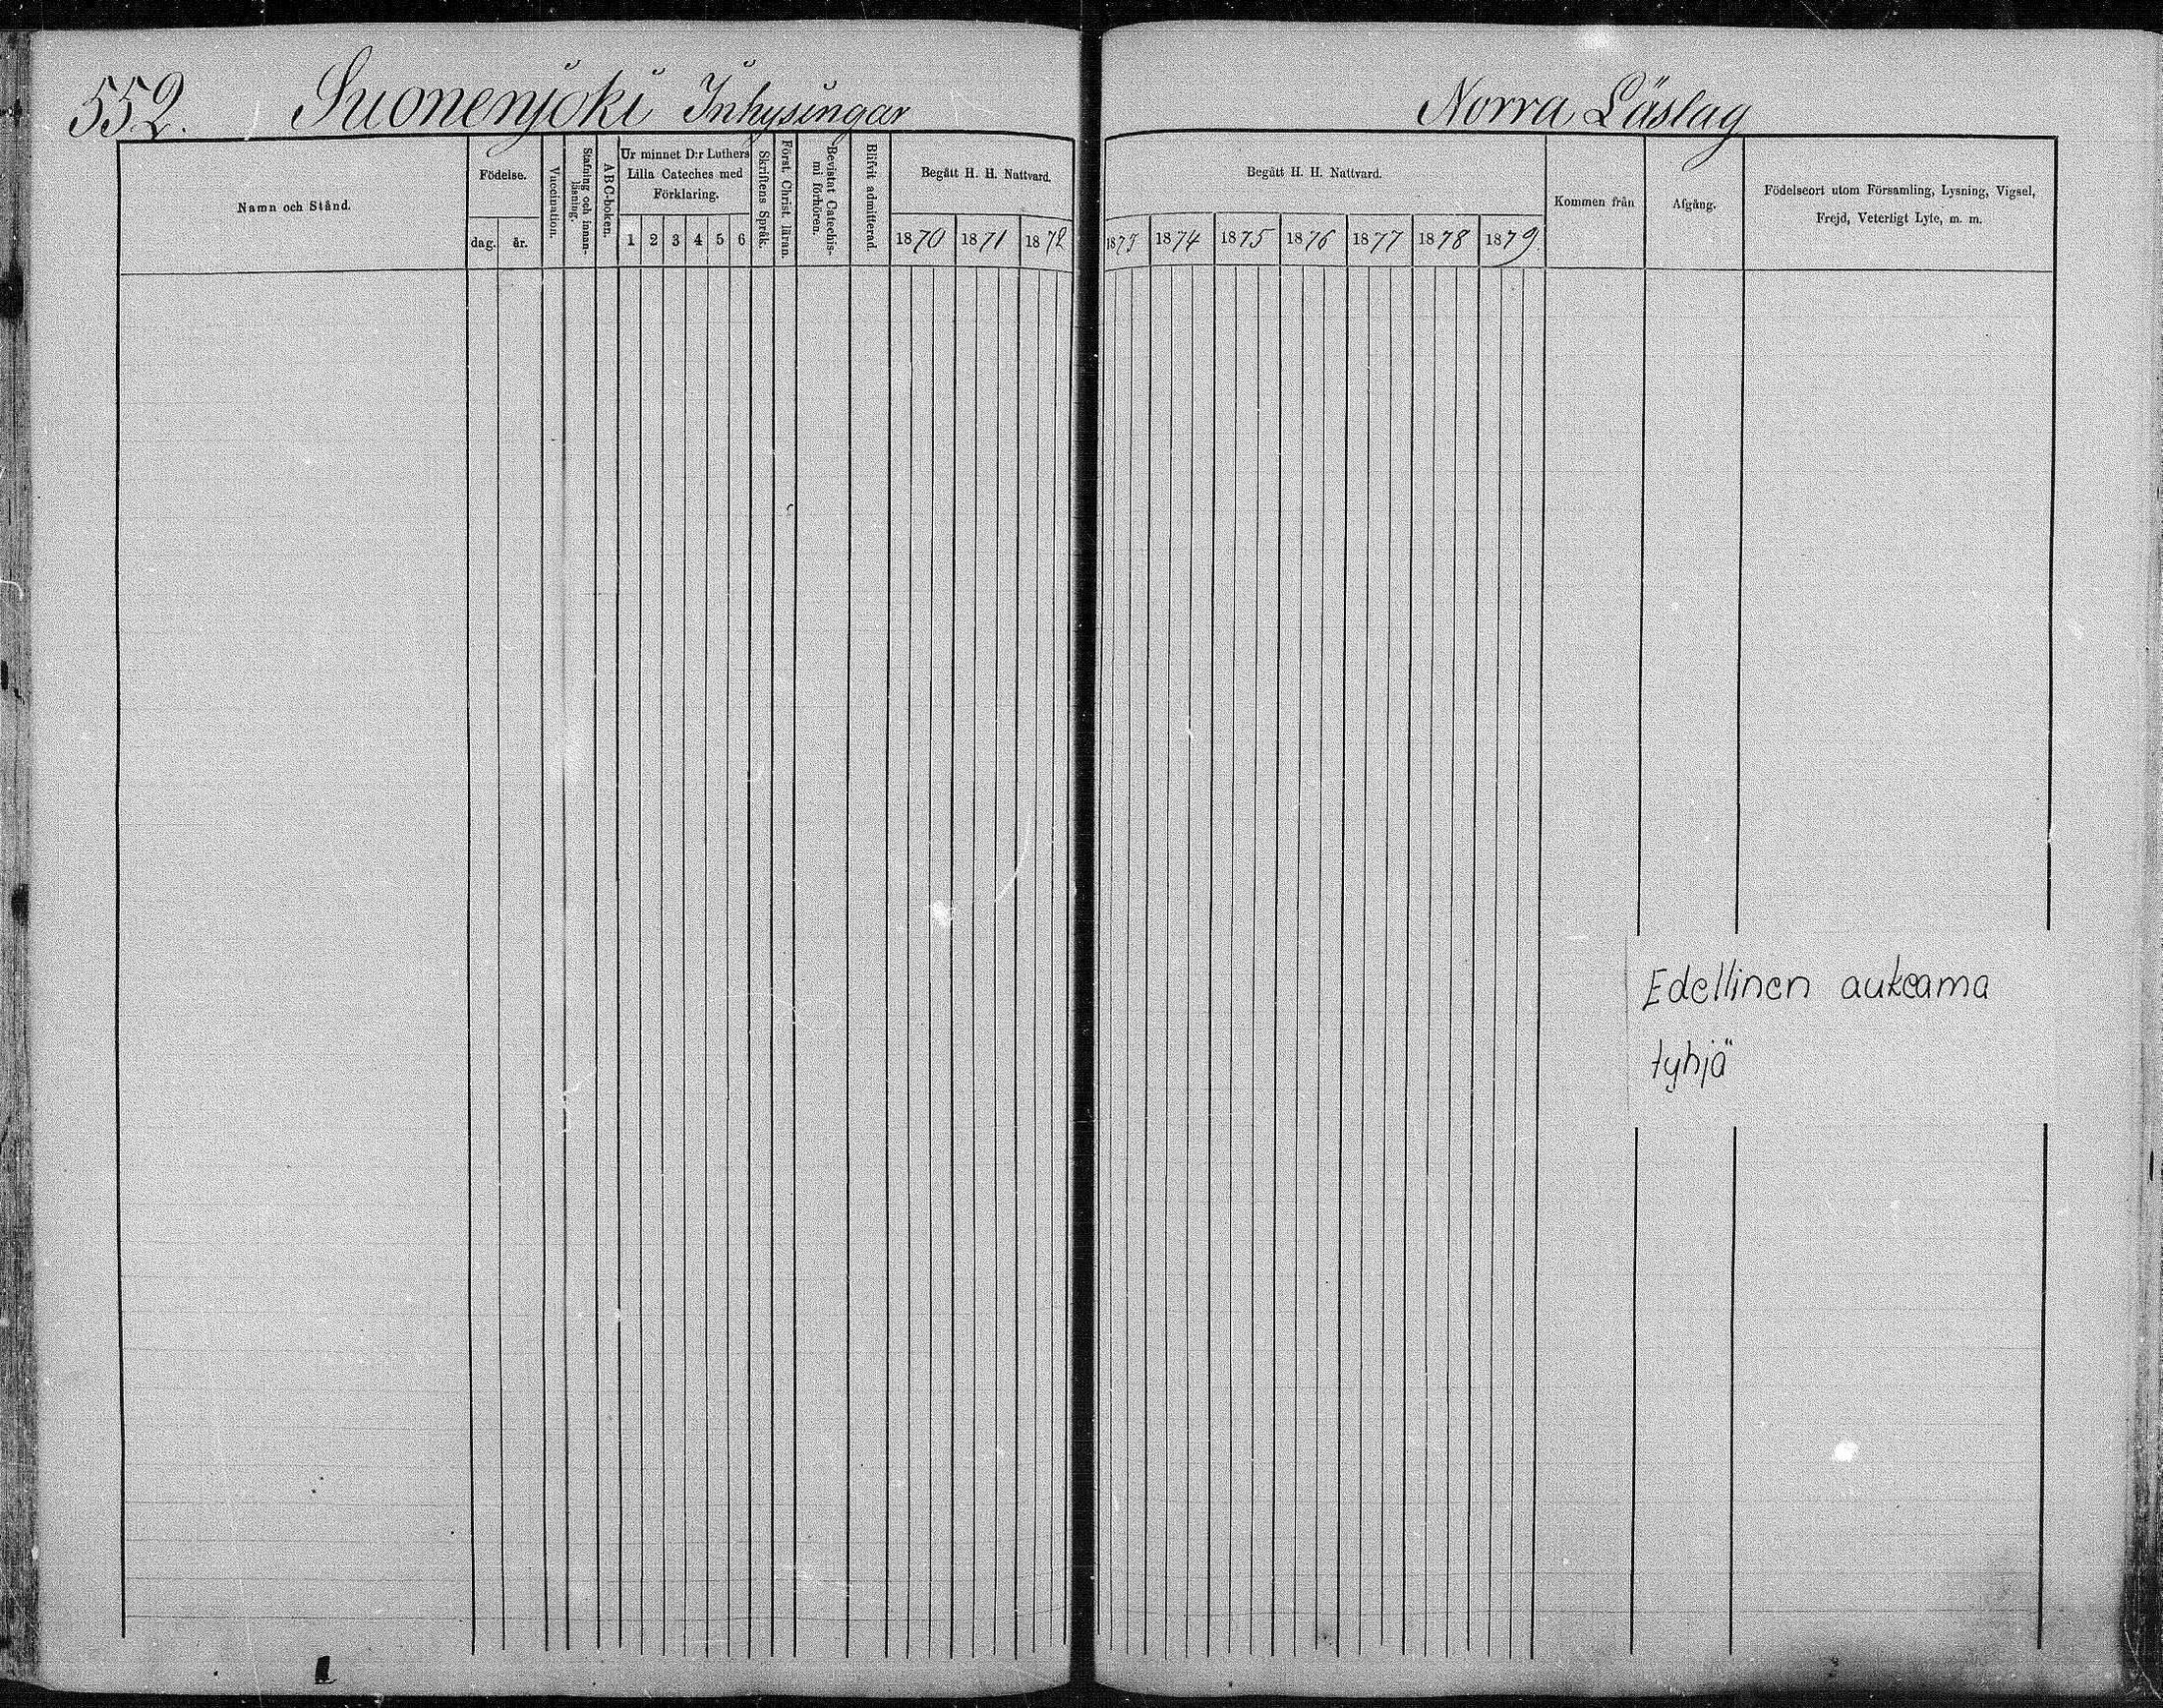 552. Suonenjoki Inhysingar
Norra Läslag
Namn och Stånd.
Födelse.
dag. år.
Vaccination.
Stafning och innan-
läsning.
ABC-boken.
Ur minnet D:r Luthers
Lilla Cateches med
Förklaring.
1 2 3 4 5 6
Skriftens Språk.
Först. Christ. läran.
Bevistat Catechis-
mi förhören.
Blifvit admitterad.
Begått H. H. Nattvard.
1870 1871 1872
Begått H. H. Nattvard.
1873 1874 1875 1876 1877 1878 1879.
Kommen från
Afgång.
Födelseort utom Församling, Lysning, Vigsel,
Frejd, Veterligt Lyte, m. m.
Edellinen aukeama
tyhjä